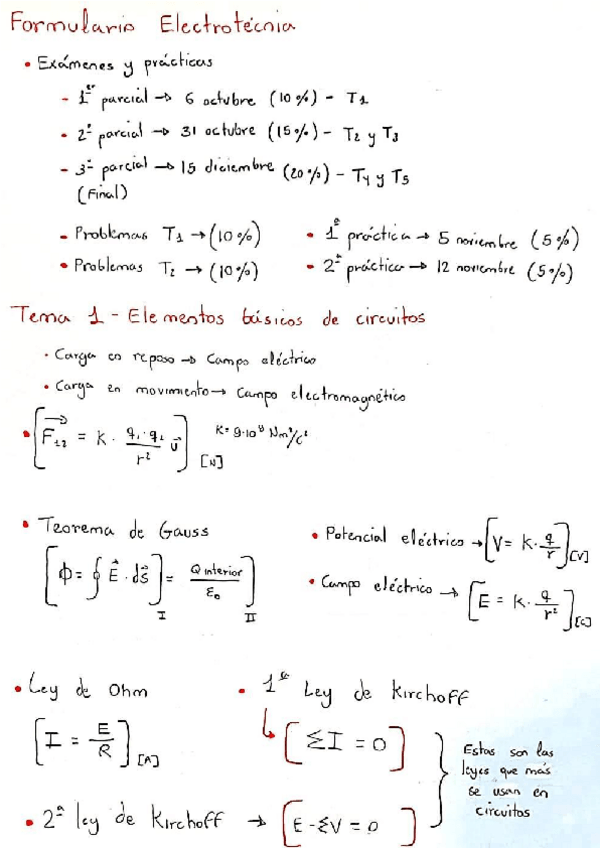 Formulario Electrotécnia
• Exámenes y prácticas
- 1er parcial → 6 octubre (10%) - T1
- 2º parcial → 31 octubre (15%) - T2 y T3
- 3º parcial → 15 diciembre (20%) - T4 y T5
(Final)
- Problemas T1 → (10%)
• 1ª práctica → 5 noviembre (5%)
• Problemas T2 → (10%)
• 2ª práctica → 12 noviembre (5%)
Tema 1 - Elementos básicos de circuitos
• Carga en reposo → Campo eléctrico
• Carga en movimiento → Campo electromagnético
• [F12 = K · q1·q2/r² u] [N] K = 9·10⁹ Nm²/c²
• Teorema de Gauss
[Φ = ∮ E · ds]I = Q interior/ε0]II
• Potencial eléctrico → [V = K · q/r] [V]
• Campo eléctrico → [E = K · q/r²] [C]
• Ley de Ohm
[I = E/R] [A]
• 1ª Ley de Kirchoff
↳ [ΣI = 0]
• 2ª ley de Kirchoff → [E - ΣV = 0]
Estas son las
leyes que más
se usan en
circuitos